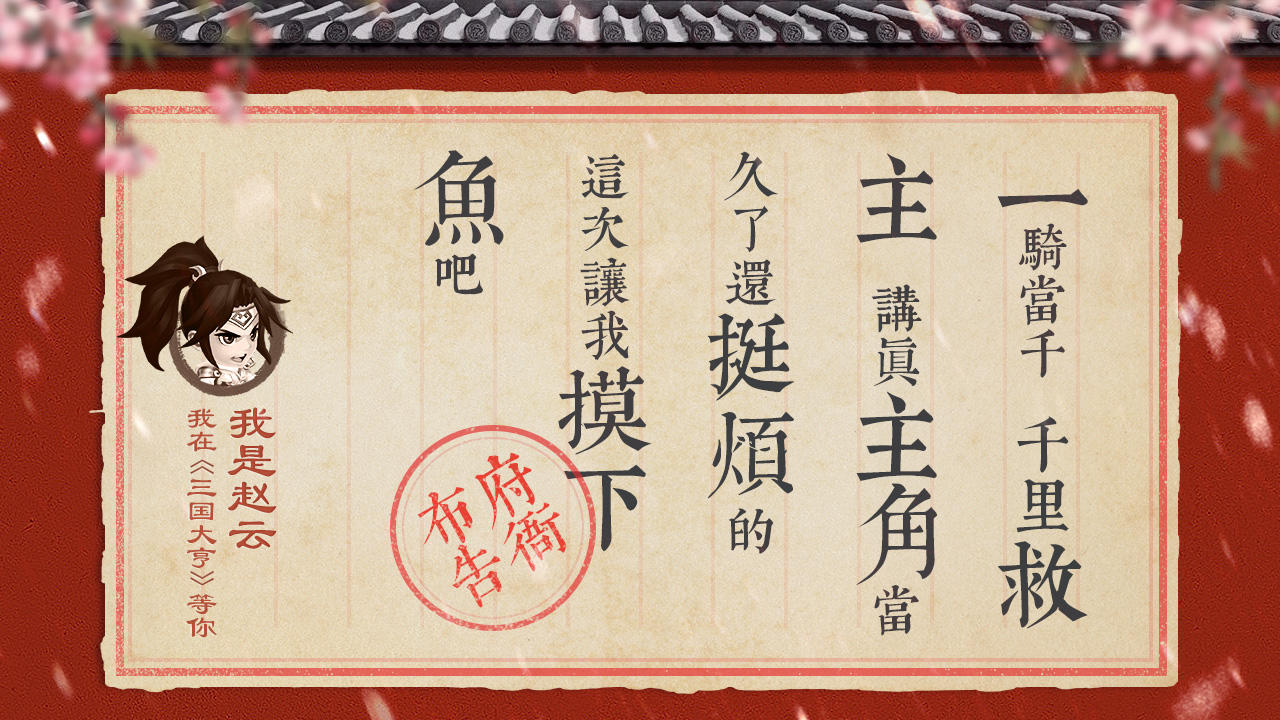 一騎當千 千里救
主 講眞主角當
久了還挺煩的
這次讓我摸下
魚吧
府衙
布告
我是赵云
我在《三国大亨》等你